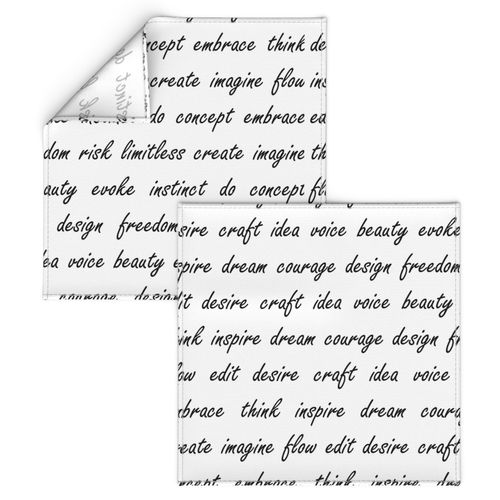 concept embrace think de
create imagine flow ins
do concept embrace ea
dom risk limitless create imagine th
auty evoke instinct do concept fl
design freedom
ea voice beauty e
courage design
sire craft idea voice beauty evoke
spire dream courage design freedom
dit desire craft idea voice beauty
ink inspire dream courage design fr
ow edit desire craft idea voice
mbrace think inspire dream courag
eate imagine flow edit desire craft
ncept embrace think inspire dre